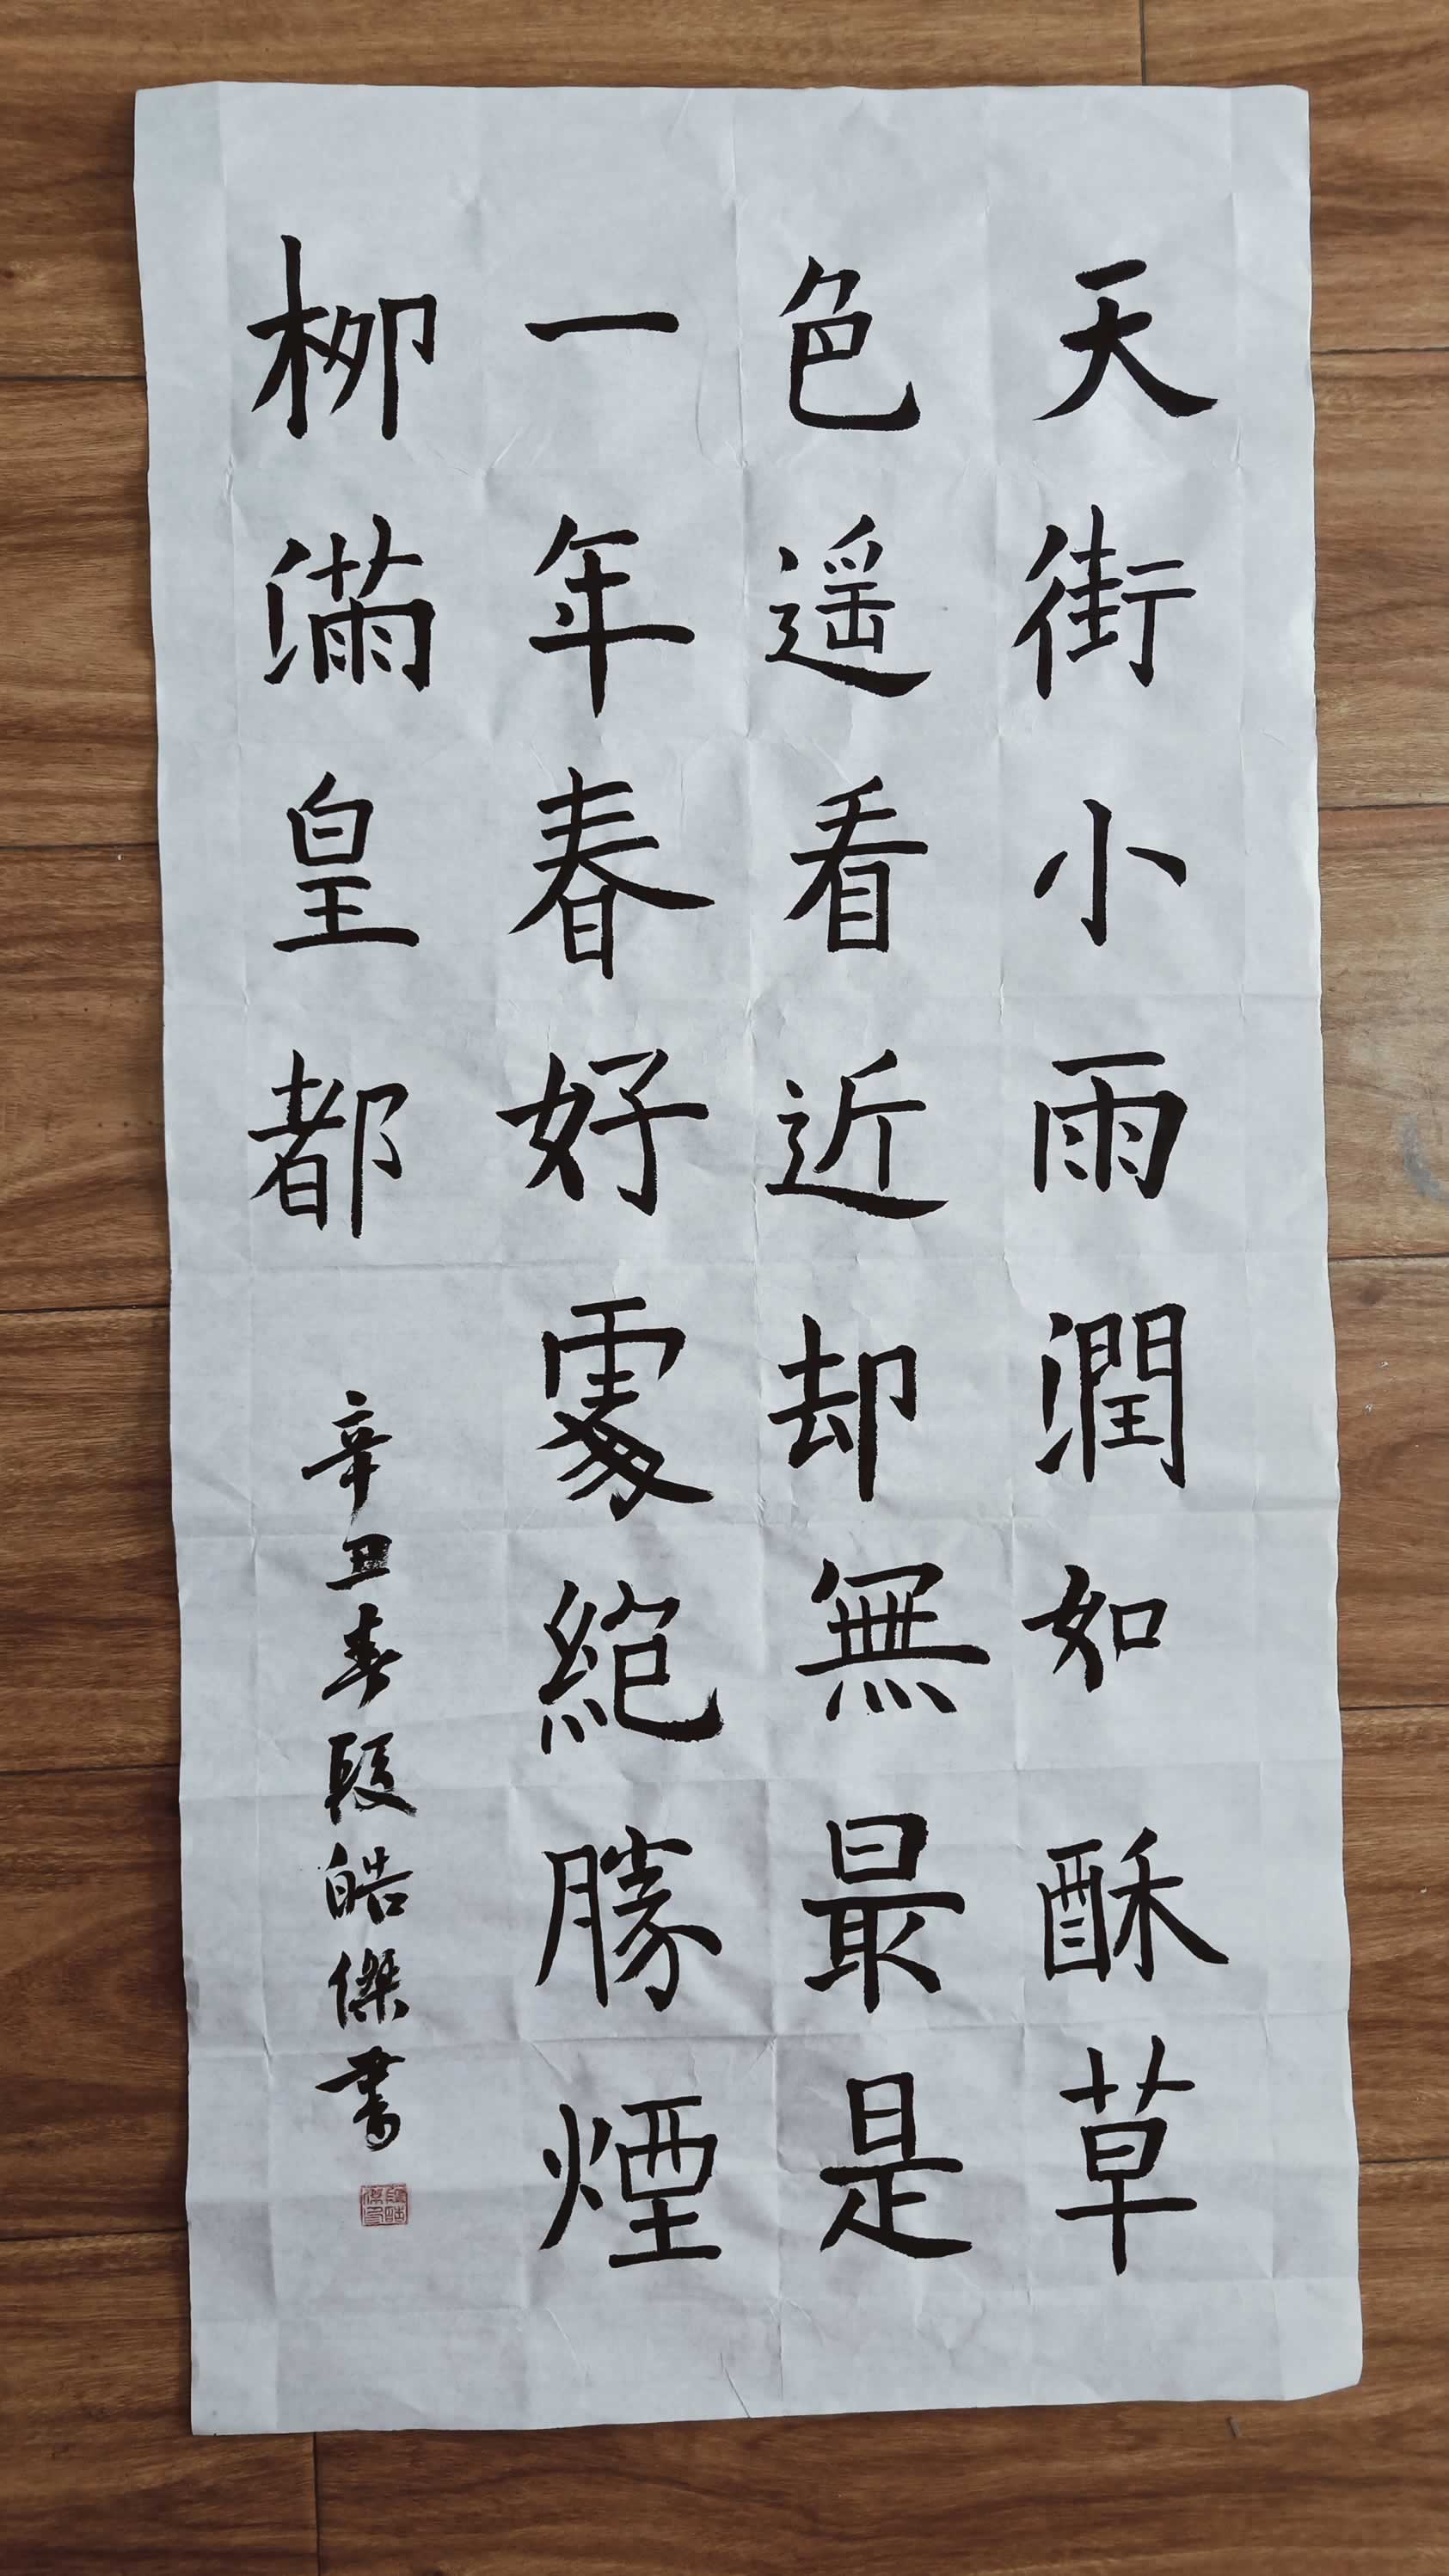 天街小雨潤如酥草
色遥看近却無最是
一年春好處絕勝煙
柳滿皇都
辛丑春段皓傑書